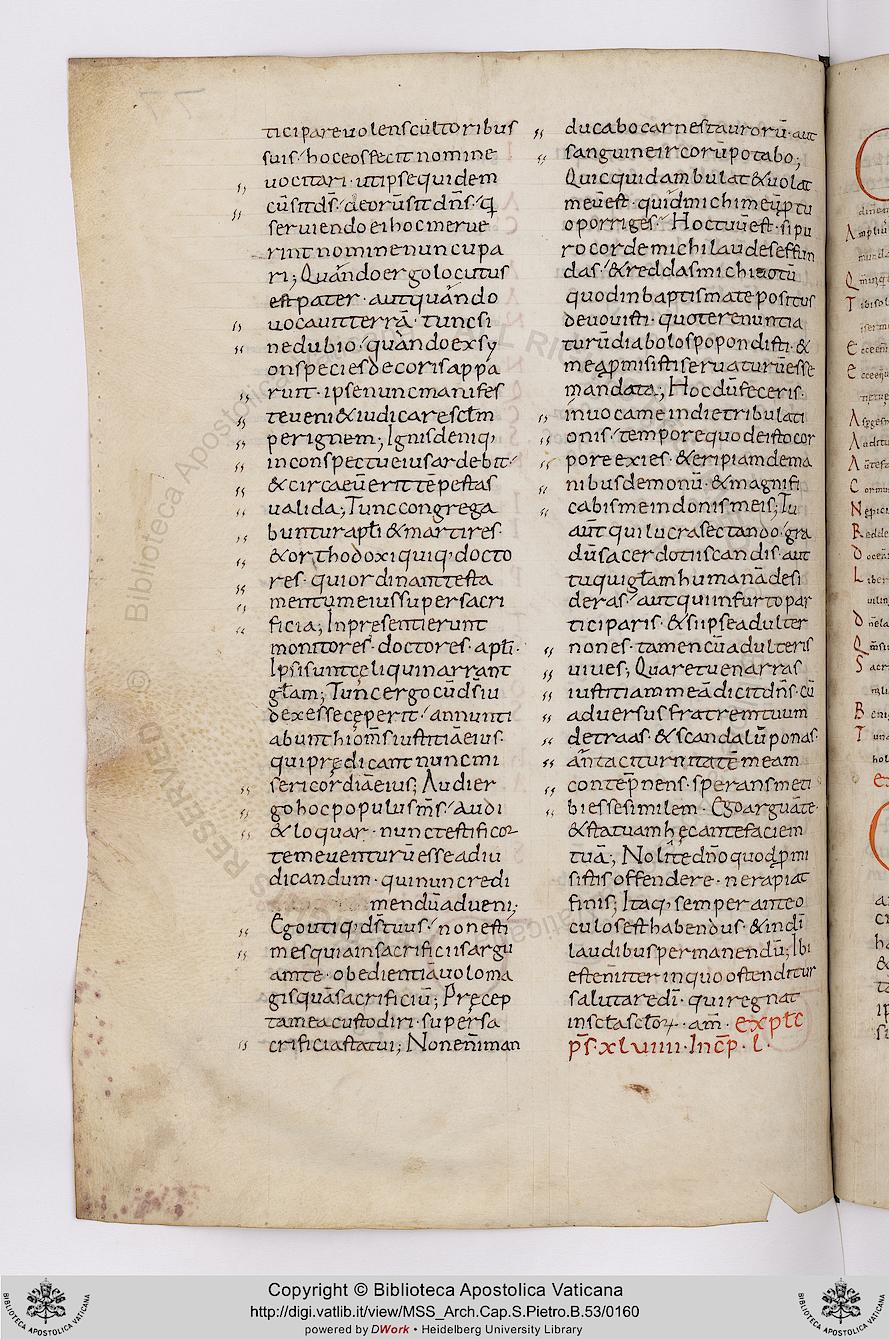 ticipare uolens cultoribus
suis hoc eos fecit nomine
uocitari · ut ipse quidem
cū sit d̄s deorū sit dn̄s · q̄
seruiendo ei hoc merue
rint nomine nuncupa
ri; Quando ergo locutus
est pater · aut quando
uocauit terrā · tunc si
ne dubio · quando ex sy
on species decoris appa
ruit · ipse nunc manifes
te ueni & iudicare sclm̄
per ignem; Ignis deniq;
in conspectu eius ardebit
& circa eū erit tēpestas
ualida; Tunc congrega
buntur apl̄i & martires·
& orthodoxi quiq; docto
res · qui ordinant testa
mentum eius super sacri
ficia; In presenti erunt
monitores · doctores · apl̄i·
Ipsi sunt cęli qui narrant
gl̄am; Tunc ergo cū dsiu
dex esse cęperit annunti
abunt hi om̄s iustitiā eius·
qui prędicant nunc mi
sericordiā eius; Audi er
go hoc populus m̄s audi
& loquar · nunc testificor
te me uenturū esse ad iu
dicandum · qui nunc credi
mendū adueni;
Ego utiq; d̄s tuus non esti
mes quia in sacrificiis argu
am te · obedientiā uolo ma
gis quā sacrificiū; Pręcep
ta mea custodiri · super sa
crificia statui; Non enī man
ducabo carnes taurorū · aut
sanguine ircorū potabo;
Quicquid ambulat & uolat
meū est · quid michi meū p tu
o porriges Hoc tuū est · si pu
ro corde michi laudes effun
das & reddas michi uotū
quod in baptismate positus
deuouisti · quo te renuntia
turū diabolo spopondisti · &
mea p̄misisti seruaturū esse
mandata; Hoc dū feceris·
inuoca me in die tribulati
onis tempore quo de isto cor
pore exies · & eripiam de ma
nibus demonū · & magnifi
cabis me in donis meis; Tu
aut̄ qui lucra sectando gra
dū sacerdotii scandis · aut
tu qui gl̄am humanā desi
deras aut qui in furto par
ticiparis · & si ipse adulter
non es · tamen cū adulteris
uiues; Quare tu enarras
iustitiam meā dicit dn̄s · cū
aduersus fratrem tuum
detraas · & scandalū ponas·
an̄ taciturnitatē meam
contēpnens · sperans me ti
bi esse similem · Ego arguā te
& statuam hęc ante faciem
tuā; Nolite dn̄o quod p̄mi
sistis offendere · ne rapiat
finis; Itaq; semper ante o
culos est habendus · & in di
laudibus permanendū; Ibi
est en̄ iter in quo ostenditur
salutare dī · qui regnat
in scl̄a scl̄oꝝ · am̄ · explc̄
ps̄ · xlviiii · Incp̄ · l ·
RESERVED
© Biblioteca Apostolica
Copyright © Biblioteca Apostolica Vaticana
http://digi.vatlib.it/view/MSS_Arch.Cap.S.Pietro.B.53/0160
powered by DWork • Heidelberg University Library
BIBLIOTECA APOSTOLICA VATICANA
BIBLIOTECA APOSTOLICA VATICANA